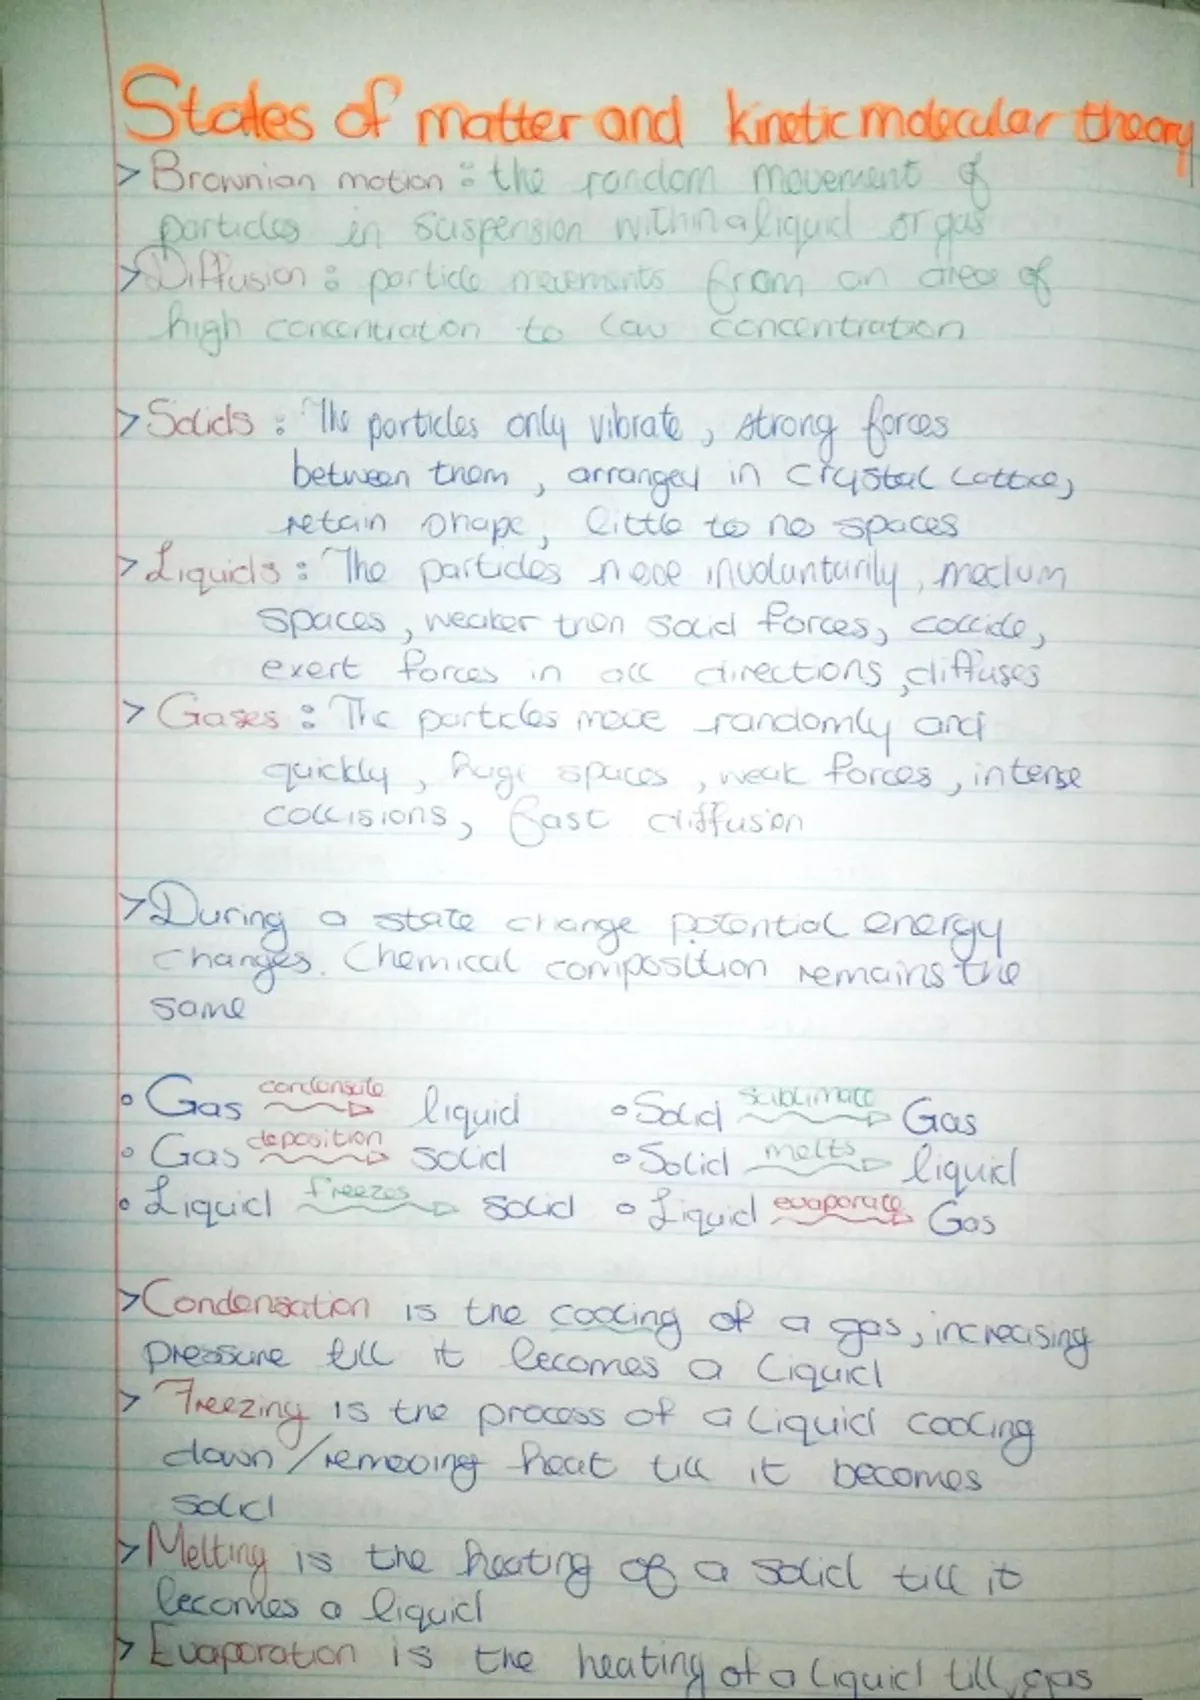 States of matter and kinetic molecular theory
> Brownian motion : the random movement of
particles in suspension within a liquid or gas
> Diffusion : particle movements from an area of
high concentration to low concentration
> Solids : The particles only vibrate, strong forces
between them, arranged in crystal lattice,
retain shape, little to no spaces
> Liquids : The particles move involuntarily, medium
spaces, weaker then solid forces, collide,
exert forces in all directions, diffuses
> Gases : The particles move randomly and
quickly, huge spaces, weak forces, intense
collisions, fast diffusion
> During a state change potential energy
changes. Chemical composition remains the
same
• Gas condensate liquid • Solid sublimate Gas
• Gas deposition solid • Solid melts liquid
• Liquid freezes solid • Liquid evaporate Gas
> Condensation is the cooling of a gas, increasing
pressure till it becomes a liquid
> Freezing is the process of a liquid cooling
down / removing heat till it becomes
solid
> Melting is the heating of a solid till it
becomes a liquid
> Evaporation is the heating of a liquid till gas